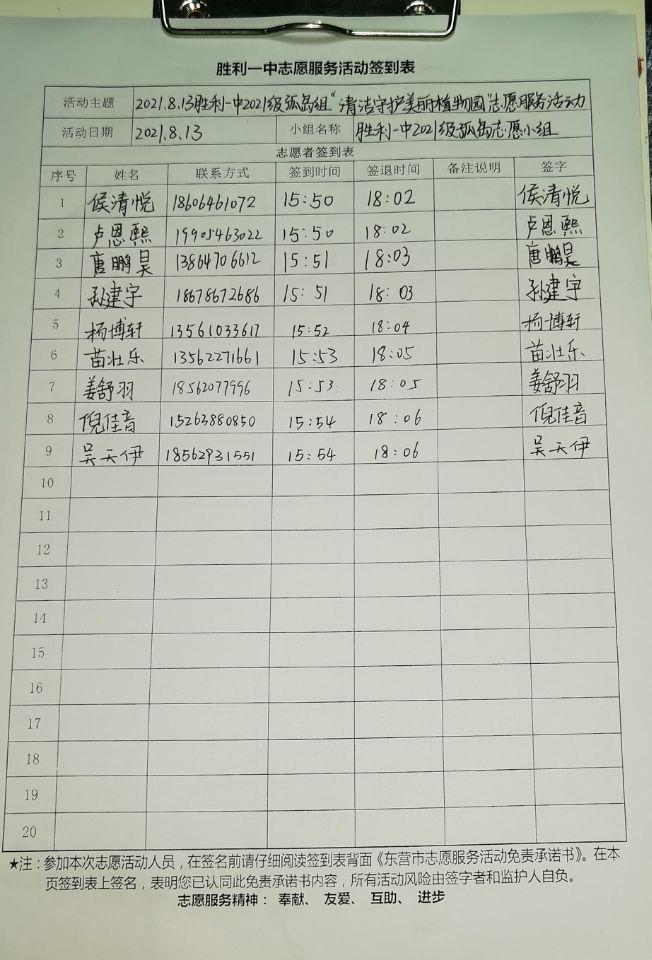 胜利一中志愿服务活动签到表
活动主题 2021.8.13胜利一中2021级孤岛组“清洁守护美丽植物园”志愿服务活动
活动日期 2021.8.13 小组名称 胜利一中2021级孤岛志愿小组
志愿者签到表
序号 姓名 联系方式 签到时间 签退时间 备注说明 签字
1 侯清悦 18606461072 15:50 18:02 侯清悦
2 卢恩熙 19905463022 15:50 18:02 卢恩熙
3 唐鹏昊 13864706612 15:51 18:03 唐鹏昊
4 孙建宇 18678672686 15:51 18:03 孙建宇
5 杨博轩 13561033617 15:52 18:04 杨博轩
6 苗壮乐 13562271661 15:53 18:05 苗壮乐
7 姜舒羽 18562077996 15:53 18:05 姜舒羽
8 倪佳音 15263880850 15:54 18:06 倪佳音
9 吴天伊 18562931551 15:54 18:06 吴天伊
10
11
12
13
14
15
16
17
18
19
20
★注：参加本次志愿活动人员，在签名前请仔细阅读签到表背面《东营市志愿服务活动免责承诺书》。在本
页签到表上签名，表明您已认同此免责承诺书内容，所有活动风险由签字者和监护人自负。
志愿服务精神： 奉献、 友爱、 互助、 进步